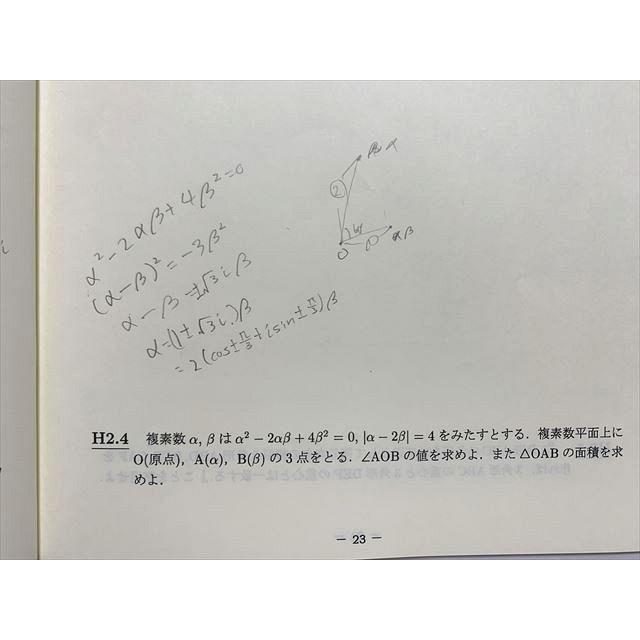 α² - 2αβ + 4β² = 0
(α - β)² = -3β²
α - β = ±√3 i β
α = (1 ± √3 i)β
= 2(cos ± π/3 + i sin ± π/3)β
α
2
O
β
H2.4 複素数 α, β は α² − 2αβ + 4β² = 0, |α − 2β| = 4 をみたすとする．複素数平面上に
O(原点)，A(α)，B(β) の 3 点をとる．∠AOB の値を求めよ．また △OAB の面積を求
めよ．
− 23 −